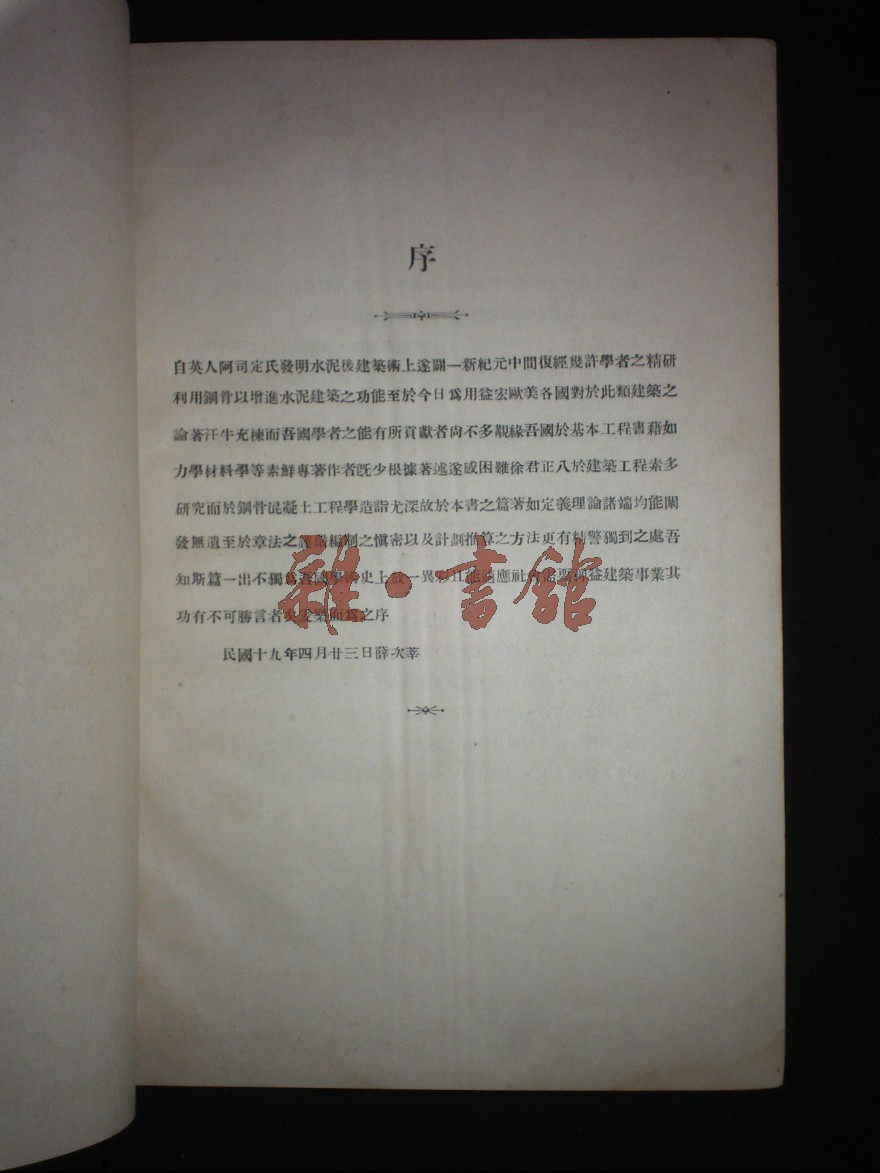 序
自英人阿司定氏發明水泥後建築術上遂闢一新紀元中間復經幾許學者之精研
利用鋼骨以增進水泥建築之功能至於今日爲用益宏歐美各國對於此類建築之
論著汗牛充棟而吾國學者之能有所貢獻者尚不多覯緣吾國於基本工程書藉如
力學材料學等素鮮專著作者旣少根據著述遂感困難徐君正八於建築工程素多
研究而於鋼骨混凝土工程學造詣尤深故於本書之篇著如定義理論諸端均能闡
發無遺至於章法之謹嚴編制之愼密以及計劃推算之方法更有精警獨到之處吾
知斯篇一出不獨爲吾國學術史上放一異彩且能適應社會需要裨益建築事業其
功有不可勝言者矣爰樂而爲之序
民國十九年四月廿三日薛次莘
雜·書館